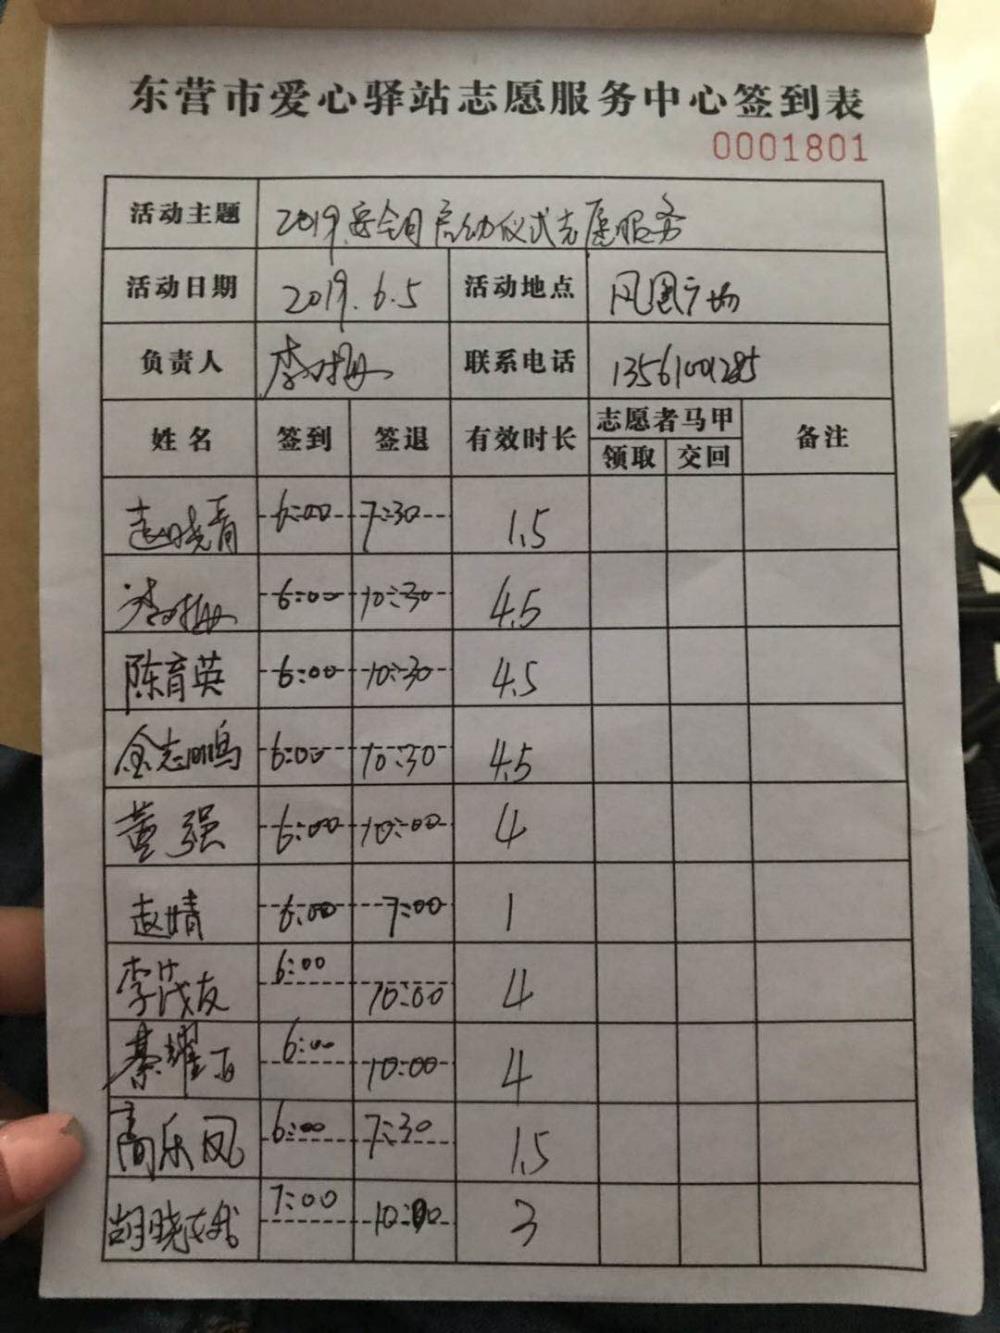 东营市爱心驿站志愿服务中心签到表
0001801
活动主题 2019.安全月启动仪式志愿服务
活动日期 2019.6.5 活动地点 凤凰广场
负责人 联系电话 13561001285
姓名 签到 签退 有效时长 志愿者马甲 备注
领取 交回
赵晓青 6:00 7:30 1.5
6:00 10:30 4.5
陈育英 6:00 10:30 4.5
金志鹏 6:00 10:30 4.5
董强 6:00 10:00 4
赵婧 6:00 7:00 1
李茂友 6:00 10:00 4
綦耀 6:00 10:00 4
高乐凤 6:00 7:30 1.5
胡晓 7:00 10:00 3